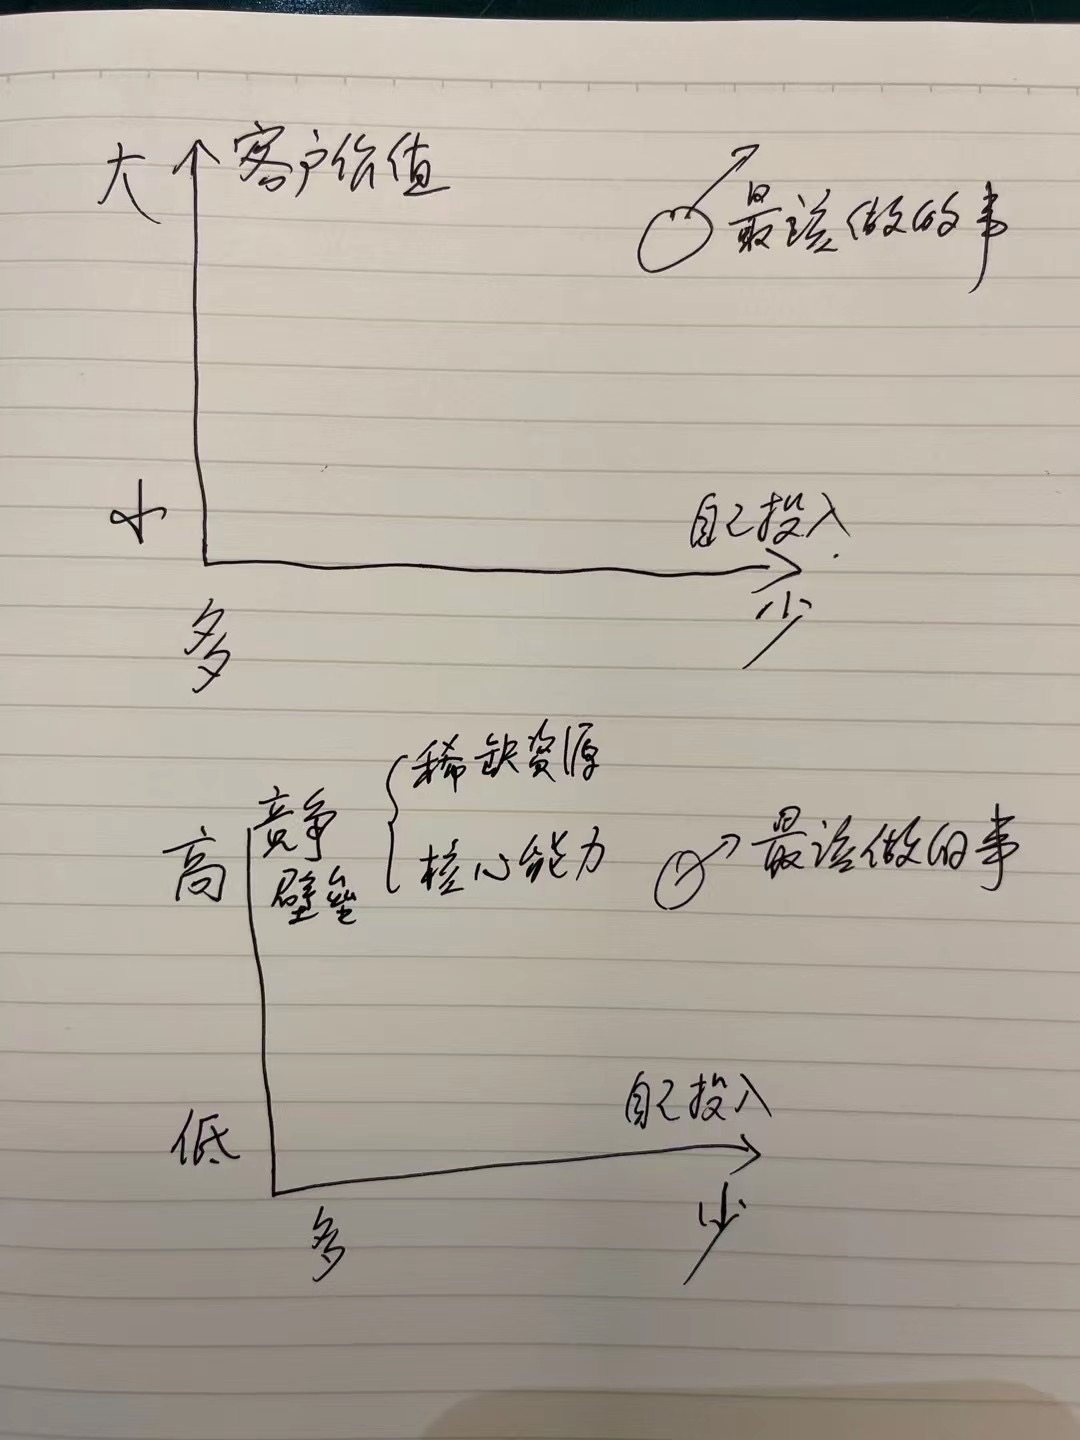 大 客户价值
最该做的事
小
自己投入
多 少
稀缺资源
高 竞争壁垒
核心能力
最该做的事
自己投入
低
多 少